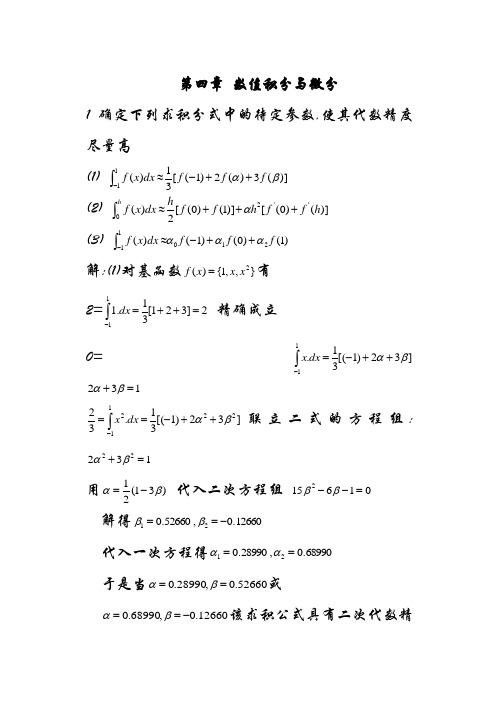 第四章 数值积分与微分
1 确定下列求积分式中的待定参数,使其代数精度
尽量高
(1) \int_{-1}^{1} f(x)dx ≈ \frac{1}{3}[f(-1)+2f(α)+3f(β)]
(2) \int_{0}^{h} f(x)dx ≈ \frac{h}{2}[f(0)+f(1)]+αh^2[f^'(0)+f^'(h)]
(3) \int_{-1}^{1} f(x)dx ≈ α_0 f(-1)+α_1 f(0)+α_2 f(1)
解:(1)对基函数 f(x)={1,x,x^2}有
2=\int_{-1}^{1} 1.dx = \frac{1}{3}[1+2+3]=2 精确成立
0= \int_{-1}^{1} x.dx = \frac{1}{3}[(-1)+2α+3β]
2α+3β=1
\frac{2}{3}=\int_{-1}^{1} x^2.dx = \frac{1}{3}[(-1)+2α^2+3β^2] 联立二式的方程组:
2α^2+3β^2=1
用α=\frac{1}{2}(1-3β) 代入二次方程组 15β^2-6β-1=0
解得β_1=0.52660 , β_2=-0.12660
代入一次方程得α_1=0.28990 ,α_2=0.68990
于是当α=0.28990,β=0.52660或
α=0.68990,β=-0.12660该求积公式具有二次代数精